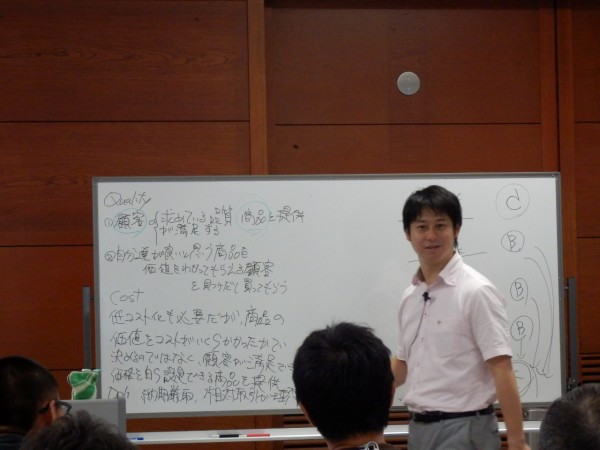 Quality
①顧客の求めている品質 商品を提供
が満足する
②自分達が良いと思う商品を
価値をわかってもらえる顧客
を見つけだし買ってもらう
Cost
低コスト化も必要だが、商品の
価値をコストがいくらかかったかで
決めるのではなく、顧客がご満足でき
価格を自ら認定できる商品を提供
納期厳取、
d
B
B
B